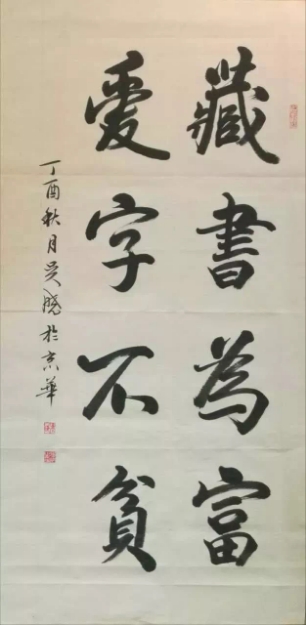 藏書為富
愛字不貧
丁酉秋月吴晓於京華